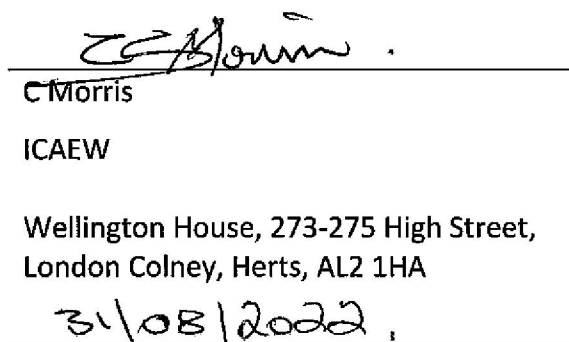 C Morris
ICAEW
Wellington House, 273-275 High Street,
London Colney, Herts, AL2 1HA
31/08/2022.